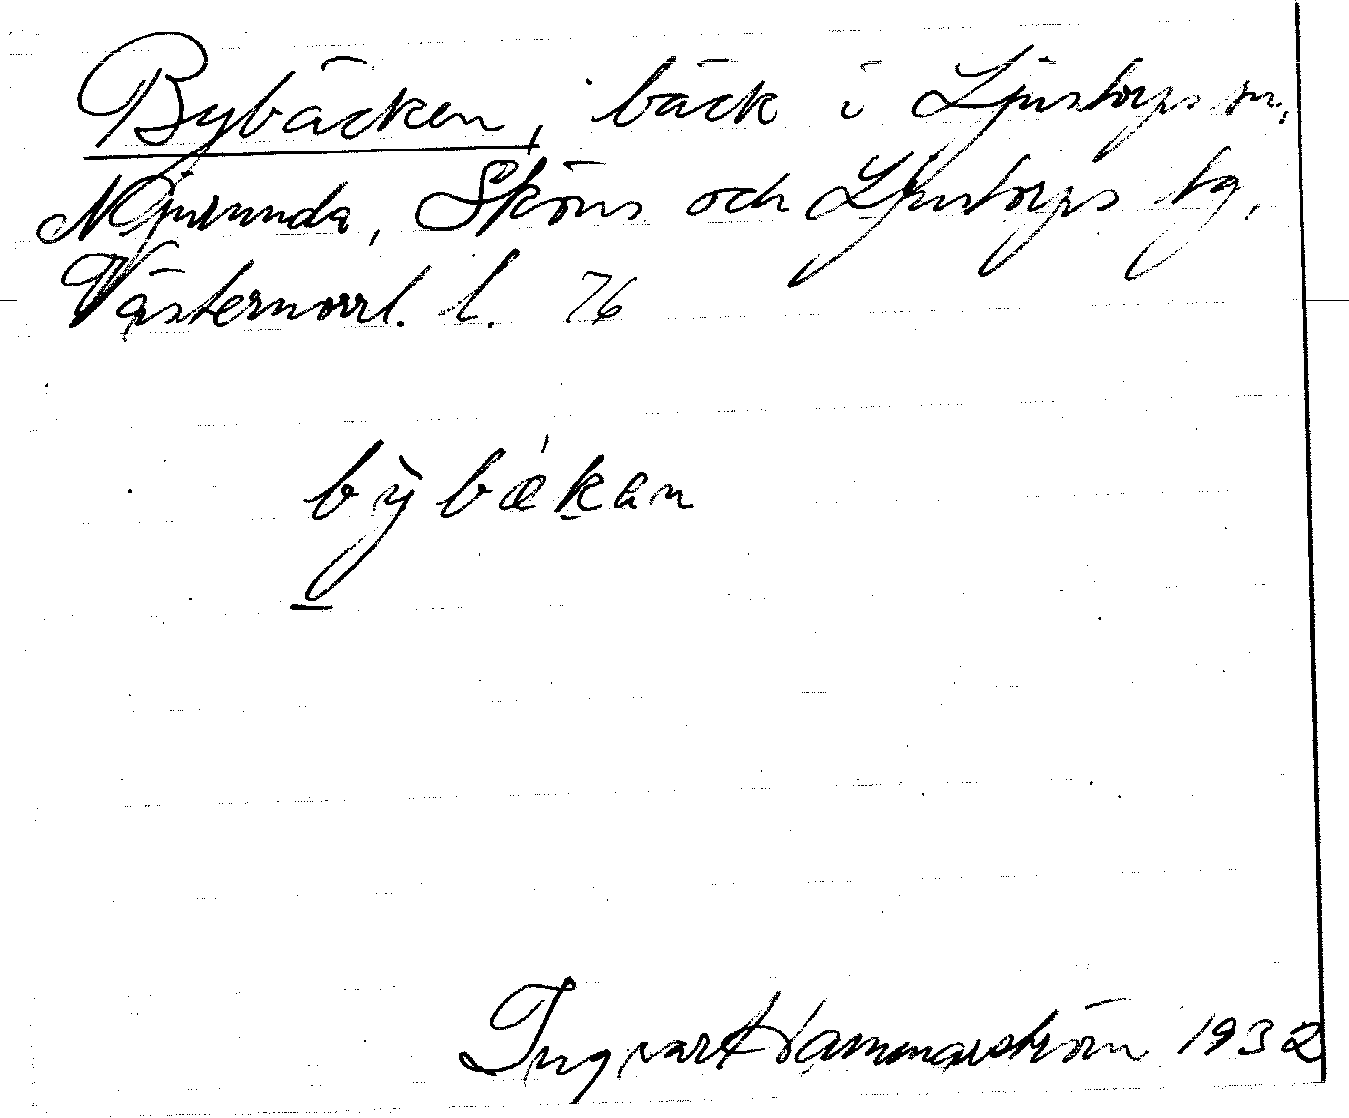 Bybäcken, bäck i Ljustorps sn,
Njurunda, Sköns och Ljustorps tg,
Västernorrl. l. 76
bỳbækan
Ingvar Hammarström 1932